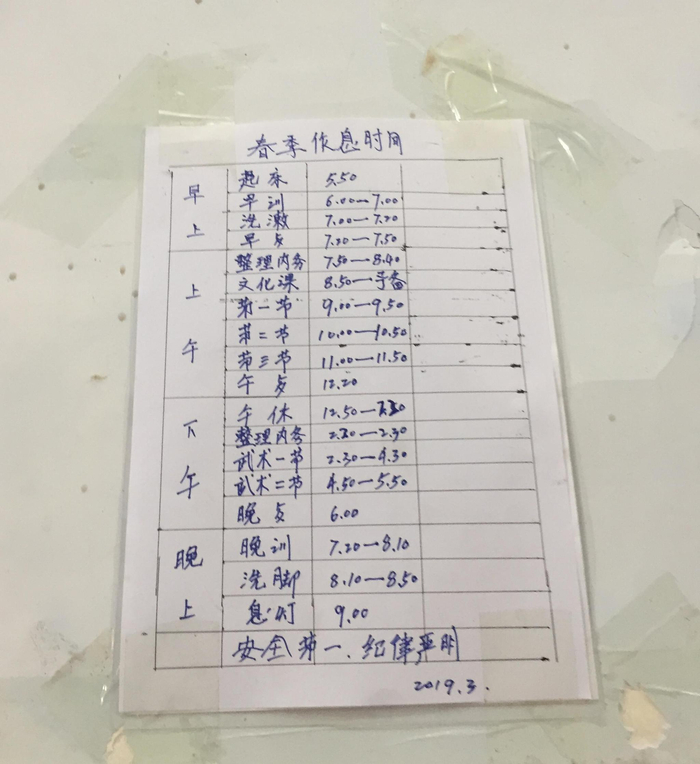 春季作息时间
早上
起床 5.50
早训 6.00—7.00
洗漱 7.00—7.20
早点 7.20—7.50
上午
整理内务 7.50—8.40
文化课 8.50—予备
第一节 9.00—9.50
第二节 10.00—10.50
第三节 11.00—11.50
午点 12.20
下午
午休 12.50—
整理内务 2.30
武术一节 2.30—4.30
武术二节 4.50—5.50
晚点 6.00
晚上
晚训 7.20—8.10
洗脚 8.10—8.50
息灯 9.00
安全第一、纪律严明
2019.3.